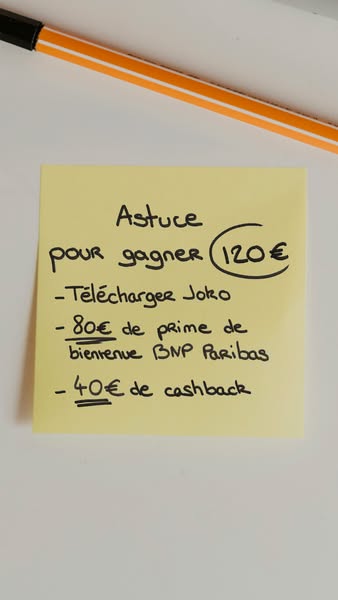 Astuce
pour gagner 120€
- Télécharger Joko
- 80€ de prime de
bienvenue BNP Paribas
- 40€ de cashback